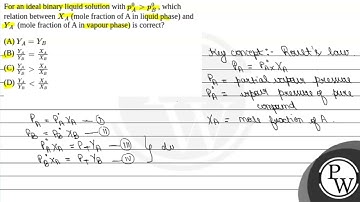 For an ideal binary liquid solution with p°A > p°B, which
relation between XA (mole fraction of A in liquid phase) and
YA (mole fraction of A in vapour phase) is correct?
(A) YA = YB
(B) YA/YB = XA/XB
(C) YA/YB > XA/XB
(D) YA/YB < XA/XB
Key concept:- Raoult's law
PA = P°A XA
PA = partial vapour pressure
P°A = vapour pressure of pure
compound
XA = mole fraction of A.
PA = P°A XA — (I)
PB = P°B XB — (II)
P°A XA = PT YA — (III)
P°B XB = PT YB — (IV)
PW